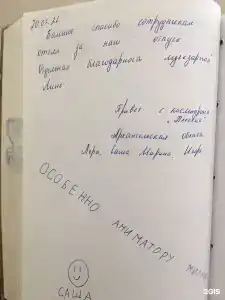 20.07.21
Большое спасибо сотрудникам
отеля за наш отпуск
Огромная благодарность музработ
Лине
Привет с космодрома
"Плесецк"
Архангельская область
Лера, Саша Марина, Игорь
ОСОБЕННО АНИМАТОРУ
САША
2GIS